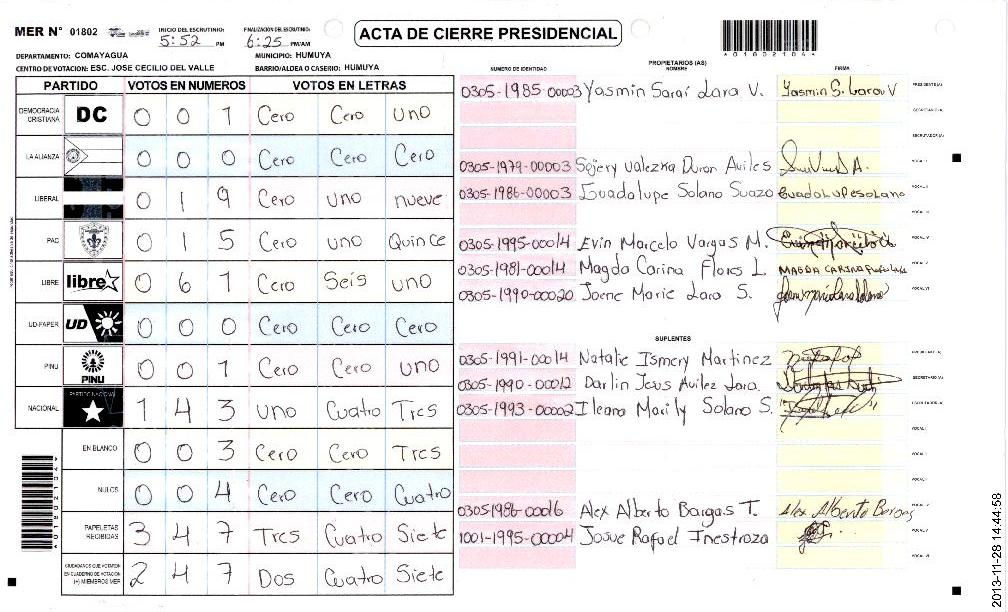 MER N° 01802 INICIO DEL ESCRUTINIO: 5:52 PM FINALIZACIÓN DEL ESCRUTINIO: 6:25 PM/AM ACTA DE CIERRE PRESIDENCIAL
DEPARTAMENTO: COMAYAGUA MUNICIPIO: HUMUYA
CENTRO DE VOTACION: ESC. JOSE CECILIO DEL VALLE BARRIO/ALDEA O CASERIO: HUMUYA
PARTIDO VOTOS EN NUMEROS VOTOS EN LETRAS
DEMOCRACIA CRISTIANA DC 0 0 1 Cero Cero uno
LA ALIANZA 0 0 0 Cero Cero Cero
LIBERAL 0 1 9 Cero uno nueve
PAC 0 1 5 Cero uno Quince
LIBRE libre 0 6 1 Cero Seis uno
UD-FAPER UD 0 0 0 Cero Cero Cero
PINU PINU 0 0 1 Cero Cero uno
NACIONAL PARTIDO NACIONAL 1 4 3 uno Cuatro Tres
EN BLANCO 0 0 3 Cero Cero Tres
NULOS 0 0 4 Cero Cero Cuatro
PAPELETAS RECIBIDAS 3 4 7 Tres Cuatro Siete
CIUDADANOS QUE VOTARON EN CUADERNO DE VOTACION (+) MIEMBROS MER 2 4 7 Dos Cuatro Siete
PROPIETARIOS (AS)
NUMERO DE IDENTIDAD NOMBRE FIRMA
0305-1985-00003 Yasmin Saraí Lara V. Yasmin S. Lara V PRESIDENTE(A)
SECRETARIO(A)
ESCRUTADOR(A)
0305-1979-00003 Valezka Duron Aviles VOCAL I
0305-1986-00003 Guadalupe Solano Suazo Guadalupe Solano VOCAL II
VOCAL III
0305-1995-00014 Evin Marcelo Vargas M. VOCAL IV
0305-1981-00014 Magda Carina Flores L. MAGDA CARINA VOCAL V
0305-1990-00020 Marie Lara S. VOCAL VI
SUPLENTES
0305-1991-00014 Natalie Ismery Martinez PRESIDENTE(A)
0305-1990-00012 Darlin Jesus Avilez Lara. SECRETARIO(A)
0305-1993-00002 Ileana Marily Solano S. ESCRUTADOR(A)
VOCAL I
VOCAL II
VOCAL III
0305-1986-00016 Alex Alberto Bargas T. Alex Alberto Bargas VOCAL IV
1001-1995-00004 Josue Rafael Inestroza VOCAL V
VOCAL VI
2013-11-28 14:44:58